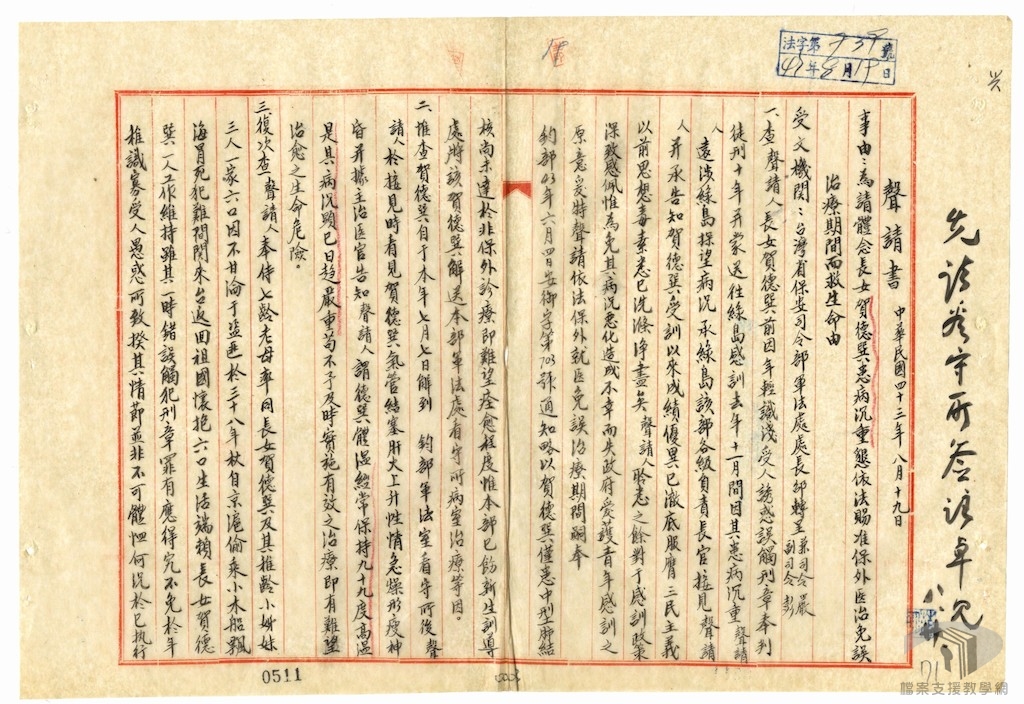 法字第939號
43年8月19日
先請看守所簽註卓見
聲請書 中華民國四十三年八月十九日
事由：為請體念長女賀德巽患病沉重懇依法賜准保外医治免誤
治療期間而救生命由
受文機関：台灣省保安司令部軍法處處長 轉呈 兼司令嚴 副司令彭
一、查聲請人長女賀德巽前因年輕識淺受人誘惑誤觸刑章奉判
徒刑十年并蒙送往綠島感訓去年十一月間因其患病沉重聲請
人遠涉綠島探望病況承綠島該部各級負責長官接見聲請
人并承告知賀德巽受訓以來成績優異已澈底服膺三民主義
以前思想毒素悉已洗滌淨盡矣聲請人聆悉之餘對于感訓政策
深致感佩惟為免其病況悪化造成不幸而失政府愛護青年感訓之
原意爰特聲請依法保外就医免誤治療期間嗣奉
鈞部43年六月四日安御字第703號通知略以賀德巽僅患中型肺結
核尚未達於非保外診療即難望痊愈程度惟本部已飭新生訓導
處將該賀德巽解送本部軍法處看守所病室治療等因。
二、惟查賀德巽自于本年七月七日解到 鈞部軍法室看守所後聲
請人於接見時有見賀德巽氣管結塞肝火上升性情急燥形瘦神
昏并據主治医官告知聲請人謂德巽體溫經常保持九十九度高溫
是其病況顕已日趋嚴重苟不予及時實施有效之治療即有難望
治愈之生命危險。
三、復次查聲請人奉侍七齡老母率同長女賀德巽及其推齡小姊妹
三人一家六口因不甘淪于盜匪於三十八年秋自京滬偷乘小木船飄
海冒死犯難間関來台返回祖國懷抱六口生活端賴長女賀德
巽一人工作維持雖其一時錯誤觸犯刑章罪有應得究不免於年
稚識寡受人愚惑所致揆其情節並非不可體恤何況於已执行
0511
71
檔案支援教學網